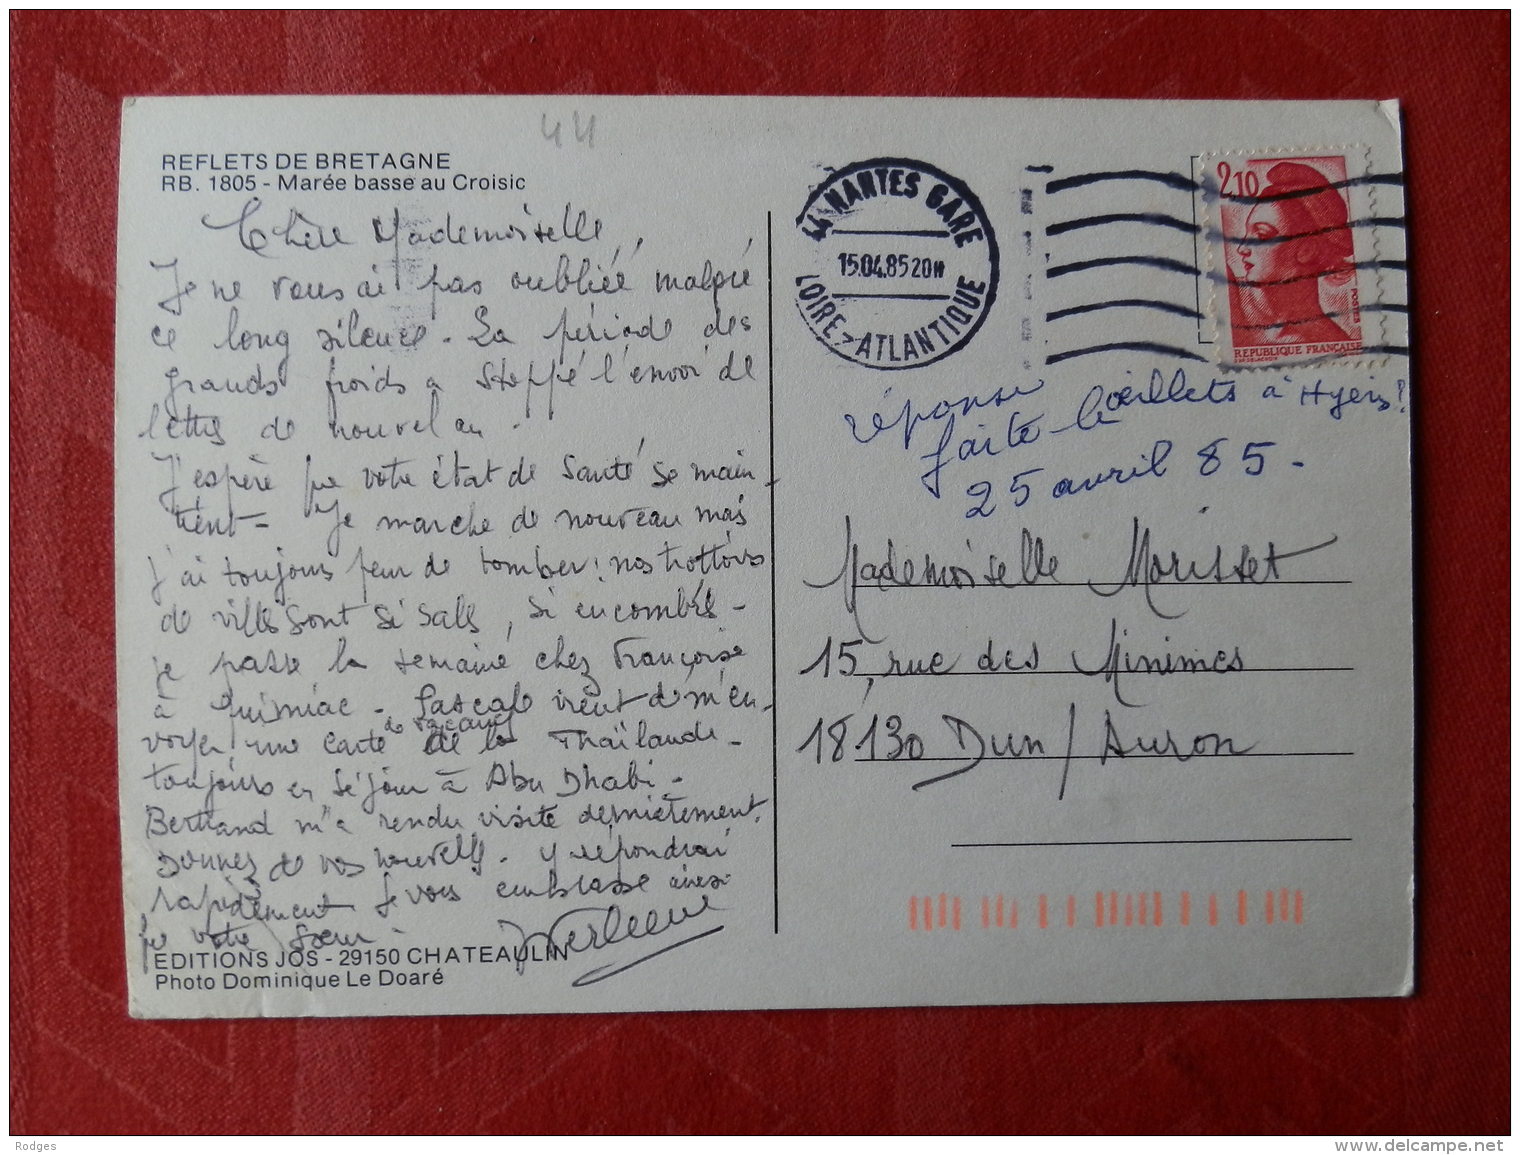 44
REFLETS DE BRETAGNE
RB. 1805 - Marée basse au Croisic
Chère Mademoiselle,
Je ne vous ai pas oubliée malgré
ce long silence. La période des
grands froids a stoppé l'envoi de
lettres de nouvel an.
J'espère que votre état de santé se main-
tient - Je marche de nouveau mais
j'ai toujours peur de tomber: nos trottoirs
de villes sont si sales, si encombrés -
je passe la semaine chez Françoise
à Quimiac - Pascale vient de m'en-
voyer une carte de vacances de la Thaïlande -
toujours en séjour à Abu Dhabi -
Bertrand m'a rendu visite dernièrement.
Donnez de vos nouvelles. J'y répondrai
rapidement. Je vous embrasse ainsi
que votre sœur -
EDITIONS JOS - 29150 CHATEAULIN
Photo Dominique Le Doaré
44 NANTES GARE
15.04.85 20H
LOIRE-ATLANTIQUE
2,10
POSTES
REPUBLIQUE FRANÇAISE
réponse
faite œillets à Hyères!
25 avril 85 -
Mademoiselle Morisset
15, rue des Minimes
18130 Dun / Auron
Rodges
www.delcampe.net